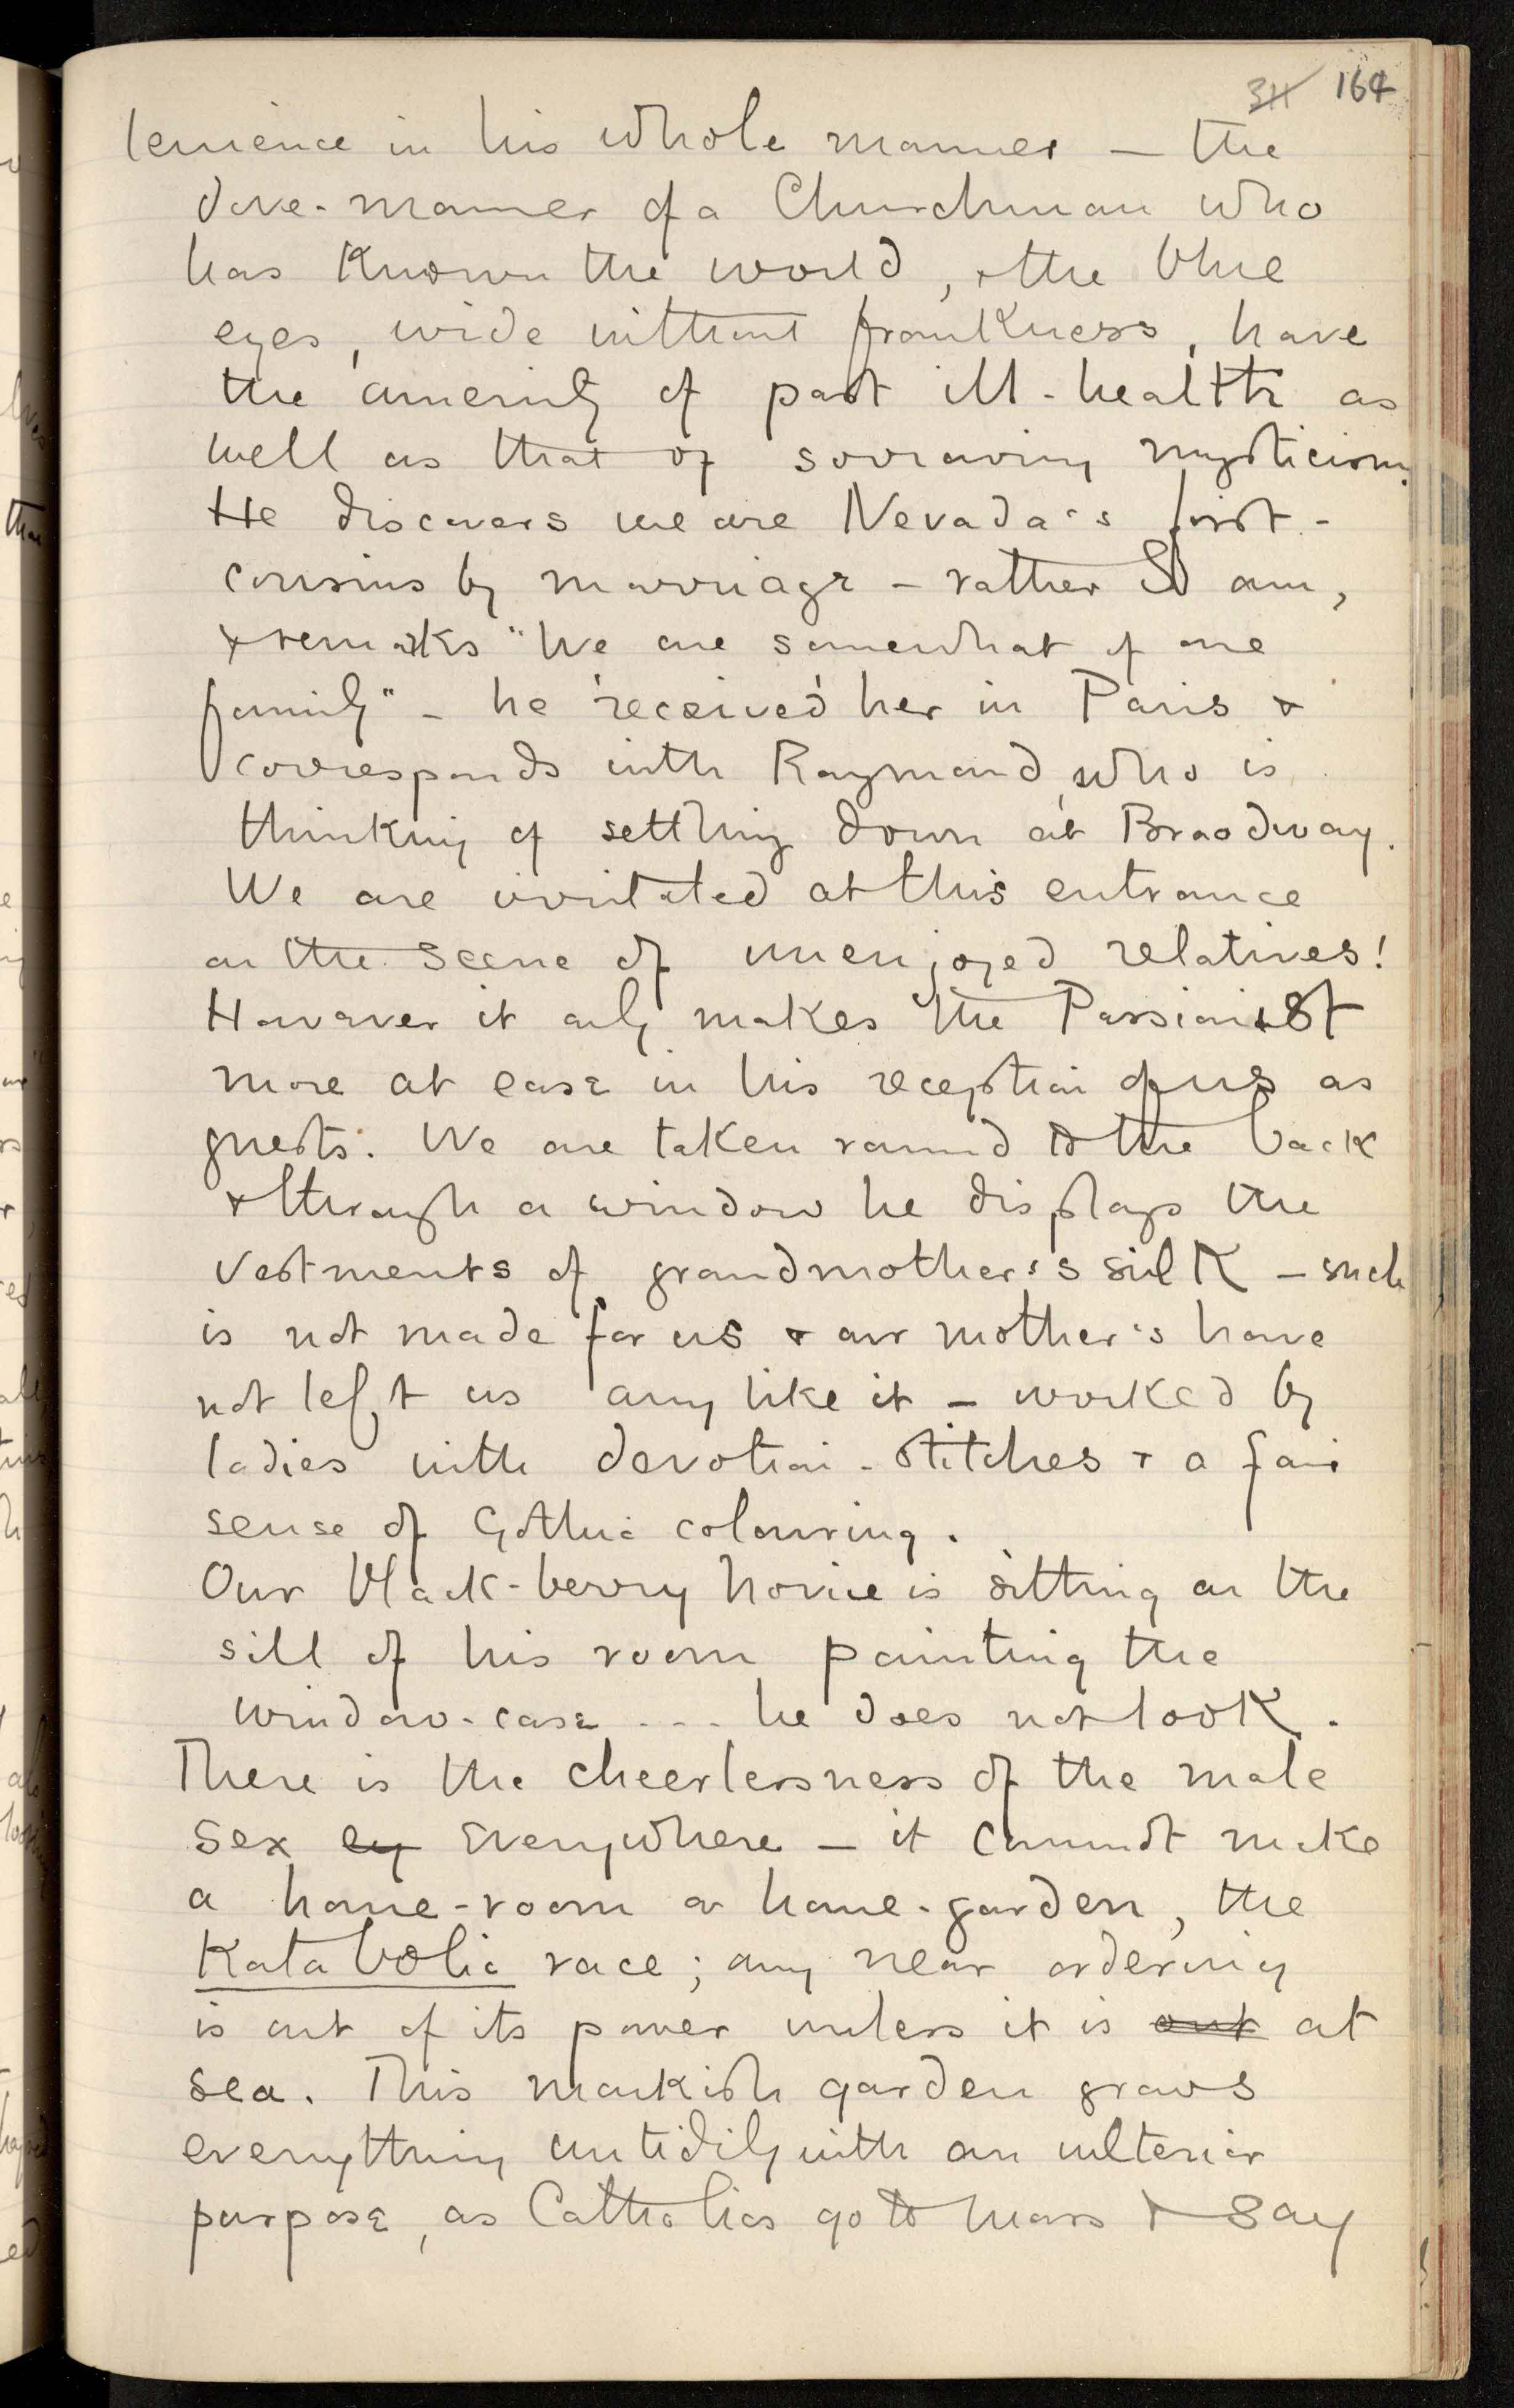 311 164
lenience in his whole manner — the
dove-manner of a Churchman who
has Known the world, & the blue
eyes, wide without frankness, have
the amenity of past ill-health as
well as that of mysticism.
He discovers we are Nevada's first-
cousins by marriage — rather I am,
& remarks "We are somewhat of one
family" — he 'received' her in Paris &
corresponds with Raymond, who is
thinking of settling down at Broadway.
We are irritated at this entrance
on the scene of unenjoyed relatives!
However it only makes the Passionist
more at ease in his reception of us as
guests. We are taken round to the back
& through a window he displays the
vestments of grandmother's silk — such
is not made for us & our mother's have
not left us any like it — worked by
ladies with devotion-stitches & a fair
sense of Gothic colouring.
Our black-berry novice is sitting on the
sill of his room painting the
window-case ... he does not look.
There is the cheerlessness of the male
sex ey everywhere — it cannot make
a home-room or home-garden, the
Katabolic race; any near ordering
is out of its power unless it is out at
sea. This monkish garden grows
everything untidily with an ulterior
purpose, as Catholics go to Mass & say